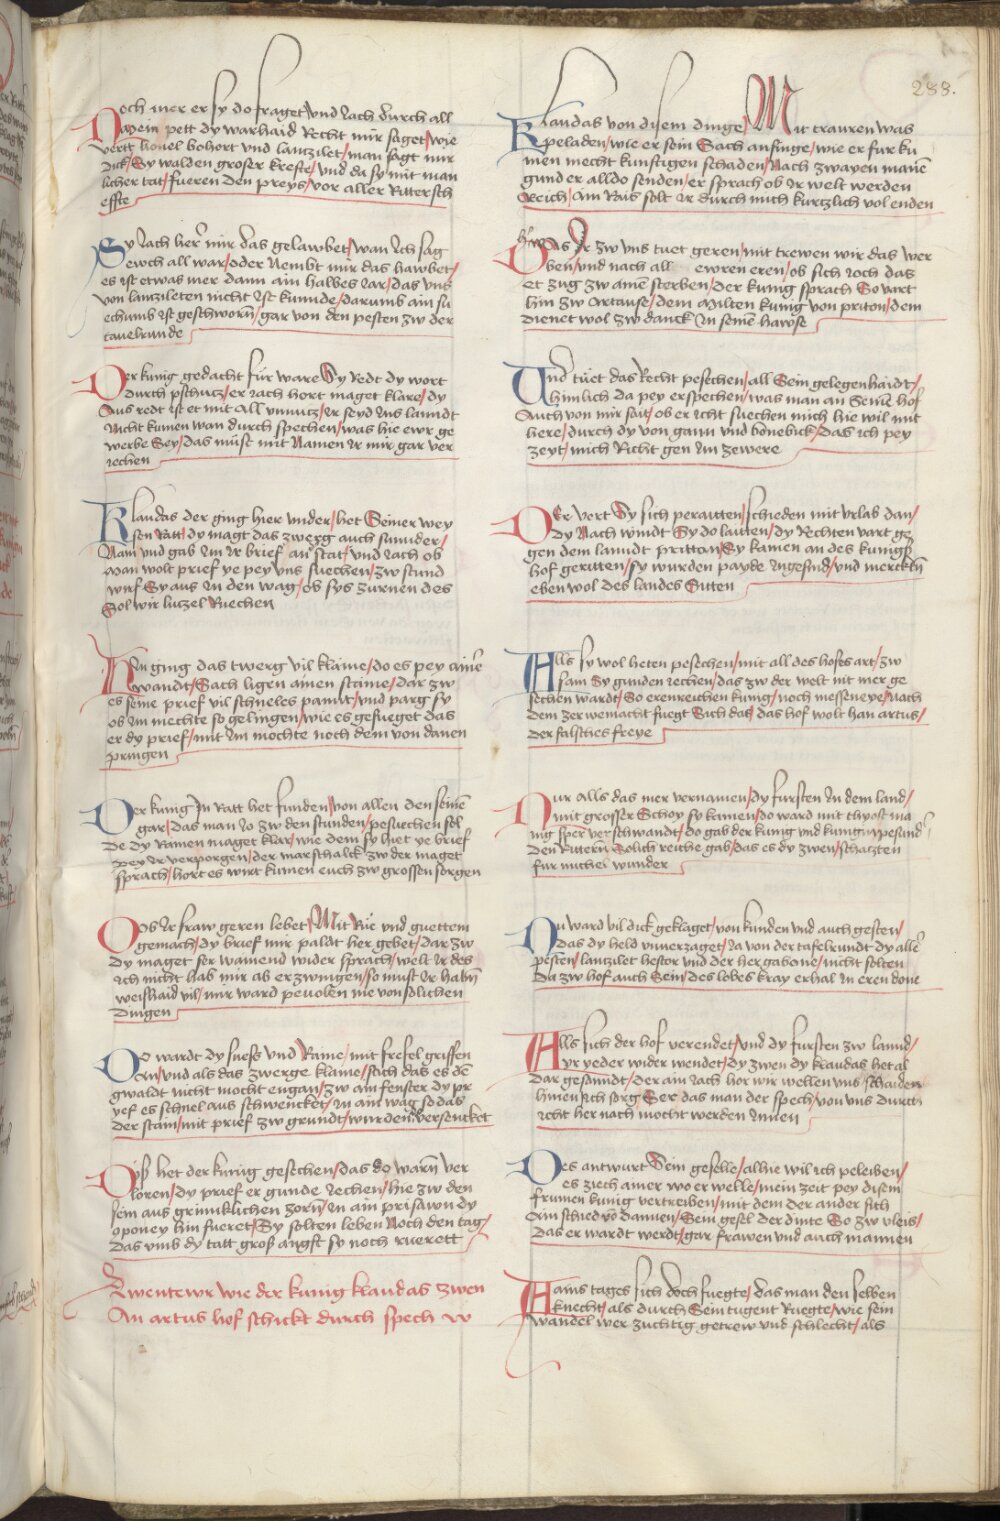 288.
Noch mer er sy do fraget/vnd iach durch all
Mein pett dy warhaid Recht mir saget/wie
vertt lionel bohort vnd lanzilet/man sagt mir
Dick/Sy walden groser krefte/vnd da sy mit man
licher tat/fueren den preys/vor aller Rittersch
effte
Sy iach her mir das gelawbet/wan ich sag
Eewch all war/oder Nembt mir das hawbet/
es ist etwas mer dann ain halbes iar/das vns
von lanzileten nicht ist kunde/darumb ain su
echumb ist geschworn/gar von den pesten zw der
tauelrunde
Der kunig gedacht fur ware/Sy Redt dy wort
durch pschutz/er iach hort maget klare/dy
Aus redt ist et mit all vnnutz/ir seyd ins lanndt
Nicht kumen wan durch spechen/was hie ewr ge
werbe Sey/das müst mit Namen ir mir gar ver
iechen
Klandas der ging hier vnder/het Seiner wey
sen Ratt/dy magt das zwerg auch sunnder/
Nam vnd gab im ir brief an stat/vnd iach ob
Man wolt prief ye pey vns suechen/zw stund
wirf Sy aus in den wag/ob sys zurnen des
Sol wir luzel Ruechen
Hin ging das twerg vil klaine/do es pey ainer
wandt/Sach ligen ainen staine/dar zw
es seine prief vil schneles pannt/vnd parg sy
ob im mechte so gelingen/wie es gefueget das
er dy prief/mit im mochte noch dem von danen
pringen
Der kunig In Ratt het funden/von allen den seinen
gar/das man io zw den stunden/pesuechen sol
De dy Rainen maget klar/wie dem sy het ye brief
pey ir verporgen/der marschalck zw der maget
sprach/hort es wirt kumen euch zw grossen sorgen
Ob ir fraw geren lebet/Mit Rue vnd guettem
gemach/dy brief mir paldt her gebet/dar zw
Dy maget ser wainend wider sprach/welt ir des
ich nicht hab mir ab er zwingen/so must ir haben
weishaid vil/mir ward peuolen nie von solichen
dingen
Do wardt dy suess vnd Raine/mit frefel griffen
An/vnd als das zwerge klaine/sach das es dem
gwaldt nicht mocht engan/zw aim fenster dy pr
yef es schnel aus schwencket/in ain wag so das
der stain/mit prief zw grundt/wurden versencket
Diss het der kunig gesechen/das do warn ver
loren/dy prief er gunde iechen/hie zw den
sein aus grimklichen zorn/in ain prisawn dy
oponey hin fueret/Sy solten leben Noch den tag/
Das vmb dy tatt gross angst sy noch ruerett
Awentewr wie der kunig klaudas zwen
An artus hof schickt durch spech
Klaudas von disem dinge/Mit trauren was
peladen/wie er sein Sach anfinge/wie er fur ku
men mecht kunftigen schaden/Nach zwayen manen
gund er alldo senden/er sprach ob ir welt werden
Reich/Ain Rais solt ir durch mich kurtzlich vol enden
Was Ir zw vns tuet geren/mit trewen wir das wer
ben/vnd nach all ewren eren/ob sich ioch das
et zug zw ainem sterben/der kunig sprach So vart
hin zw Artause/dem Milten kunig von priton/dem
dienet wol zw danck in seinem hawse
Vnd tüet das Recht pesechen/all Sein gelegenhaidt/
himlich da pey erspechen/was man an Seinem hof
Auch von mir sait/ob er icht suechen mich hie wil mit
here/durch dy von gaun vnd bonebick/das ich pey
zeyt/mich Richt gen im zewere
Der vert Sy sich peraitten/schieden mit vrlab dan/
Dy Nach windt Sy do lauten/dy Rechten vart ge
gen dem lanndt pritton/Sy kamen an des kunigs
hof geritten/sy wurden payde ingesind/vnd merckten
eben wol des landes Sitten
Alls sy wol heten pesechen/mit all des hofes art/zw
sam Sy gunden iechen/das zw der welt nit mer ge
sechen wardt/So erenreichen kunig/noch messeneye/Nach
dem zer wemacht fuegt Sich das/das hof wolt han artus/
der falsches freye
Nur alls das mer vernamen/dy fursten in dem land/
mit grosser Schoy sy kamen/do ward mit thyost ma
nig sper verschwandt/do gab der kunig vnd kunigin pesund
Den Rittern Solich reiche gab/das es dy zwen/schatzten
fur michel wunder
Nu ward vil dick geklaget/von kunden vnd auch gesten/
Das dy held vnuerzaget/ia von der tafelrundt dy aller
pesten/lanzilet hestor vnd der her gabone/nicht solten
Da zw hof auch Sein/des lobes kray erhal in eren done
Alls sich der hof verendet/vnd dy fursten zw lannd/
yr yeder wider wendet/dy zwen dy klaudas het al
dar gesanndt/der ain iach hor wir wellen vns schaiden
hinnen/ich sorg Ser das man der spech/von vns durch
icht her nach mocht werden innen
Des antwurt Sein geselle/alhie wil ich peleiben/
es ziech aimer wo er welle/mein zeit pey disem
frumen kunig vertreiben/mit dem der ander sich
An schied vo dannen/Sein gesel der dinte So zw vleis/
Das er wardt werdt/gar frawen vnd auch mannen
Ains tages sich doch fuegte/das man den selben
knecht/als durch Sein tugent Ruegte/wie sein
wandel wer zuchtig getrew vnd schlecht/als